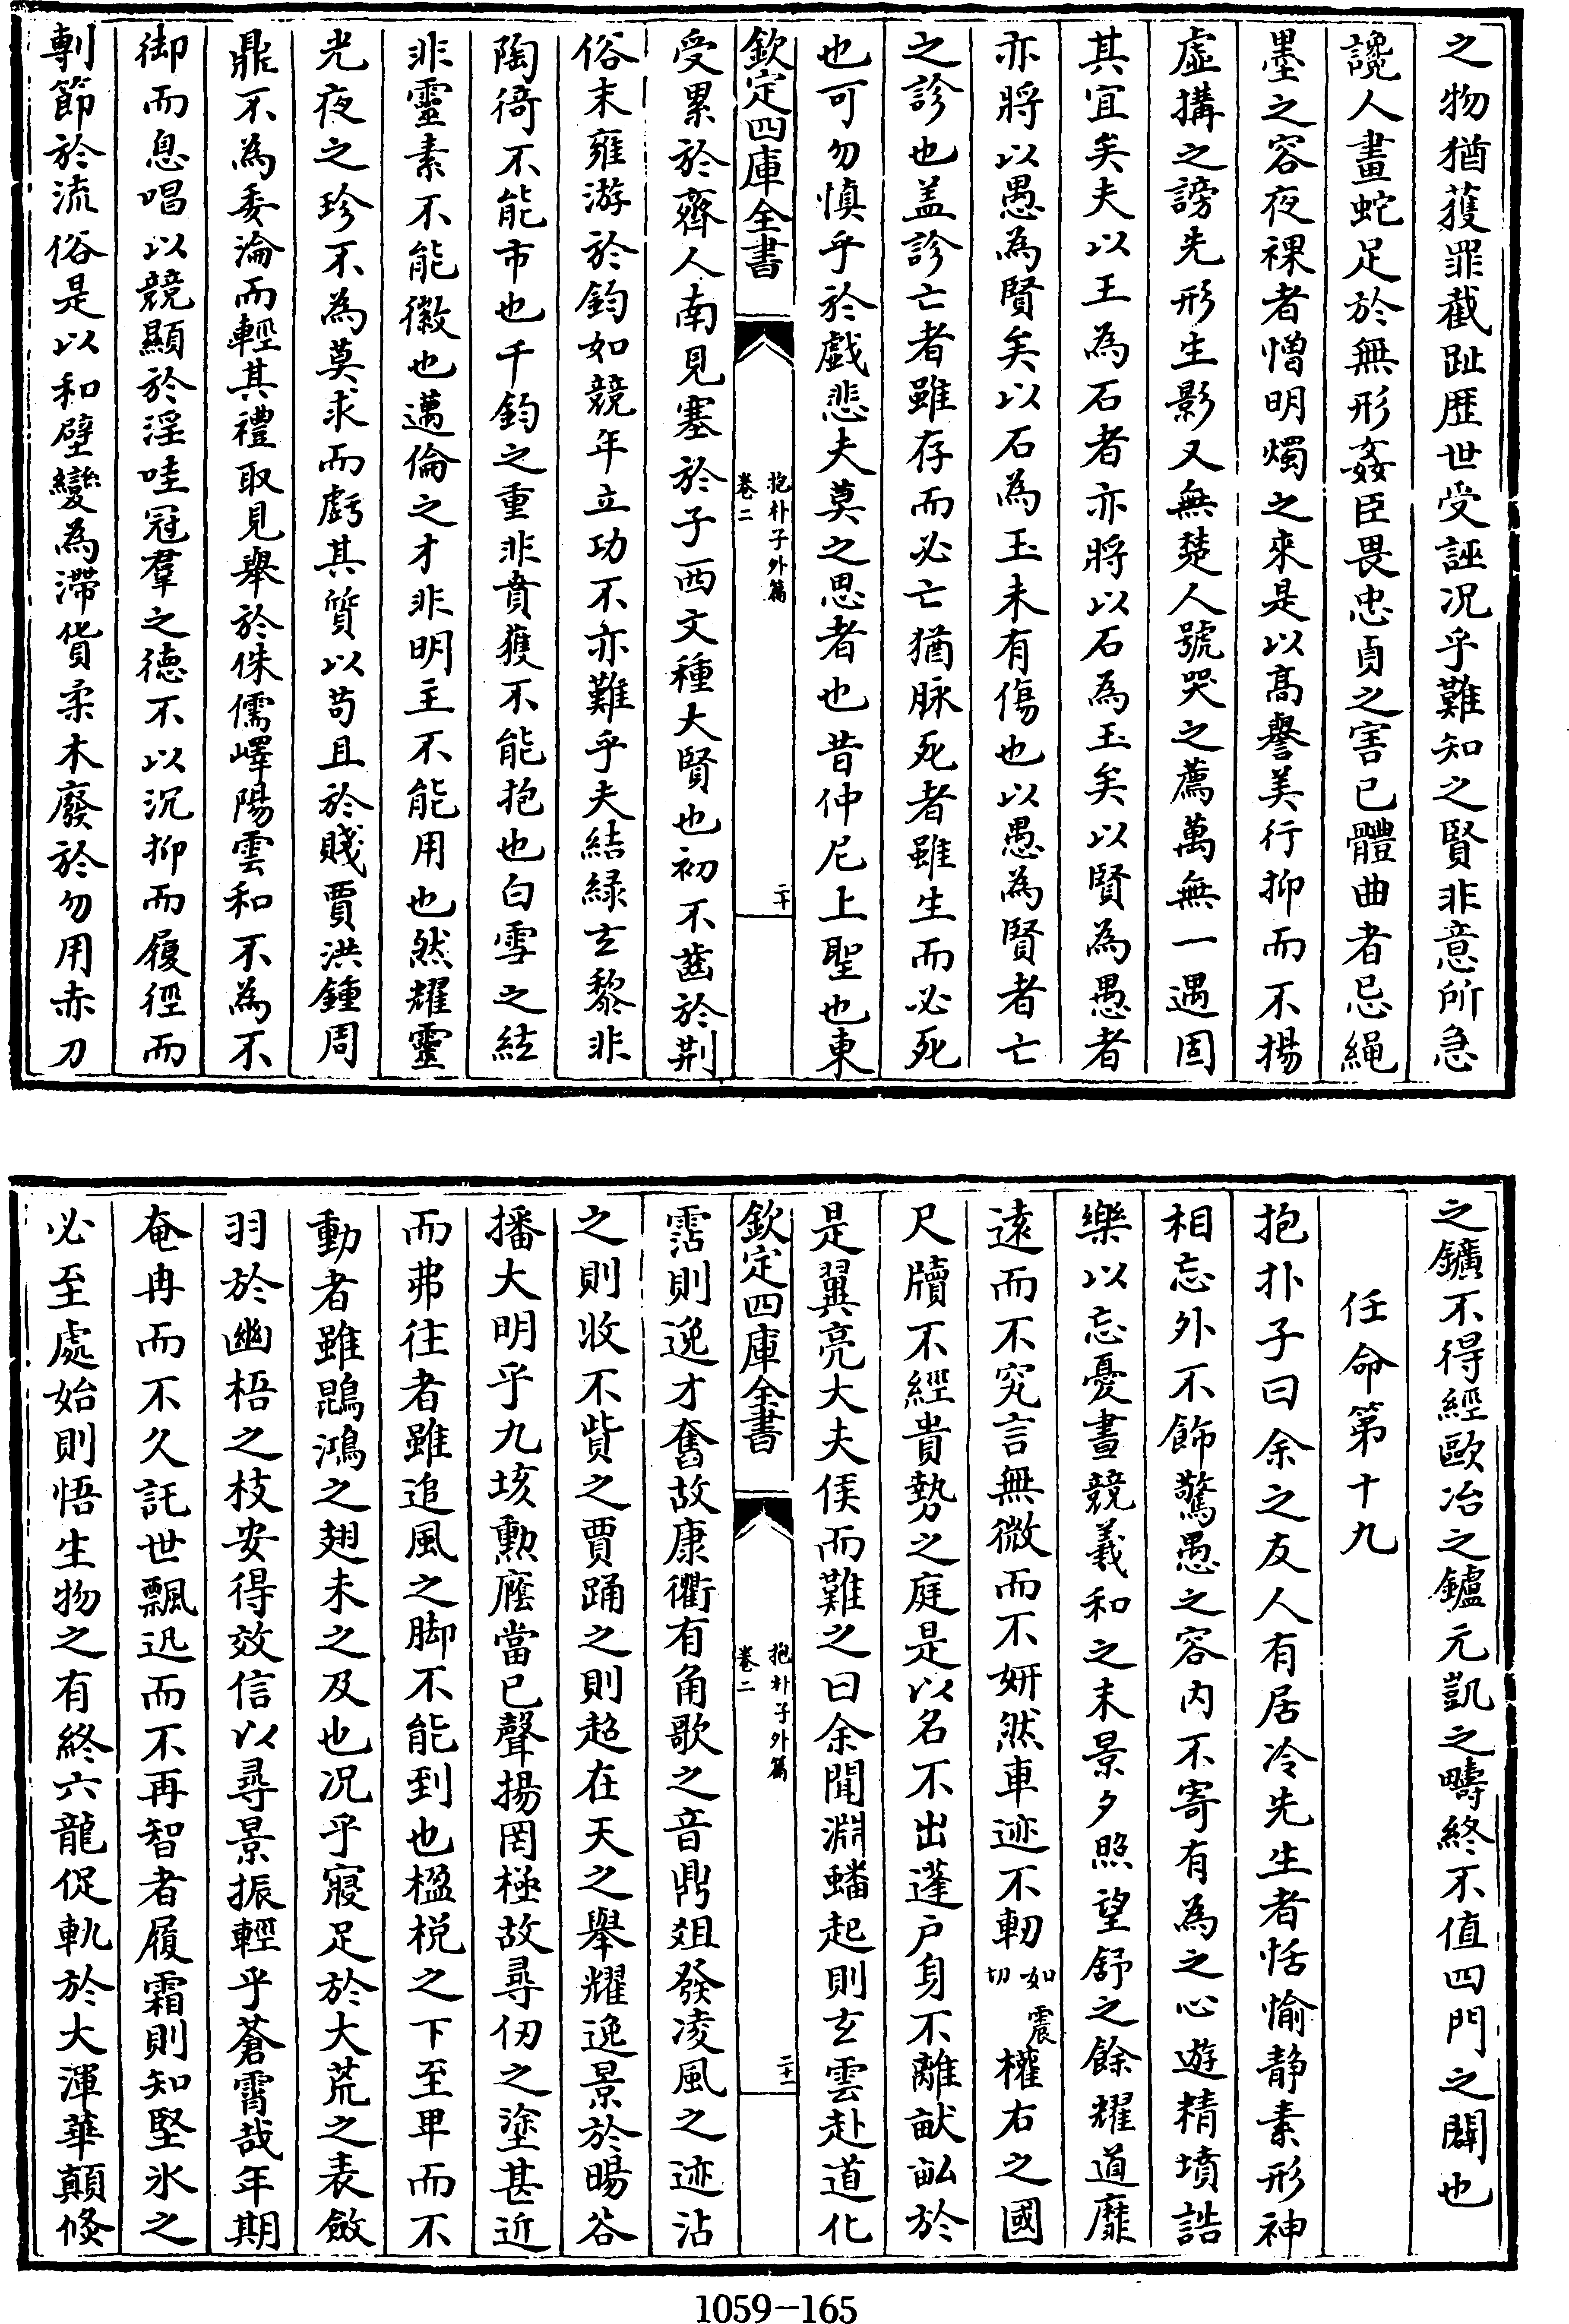 之物猶獲罪截趾歴世受誣况乎難知之賢非意所急
讒人畫蛇足於無形姦臣畏忠貞之害己體曲者忌繩
墨之容夜裸者憎明燭之來是以髙譽美行抑而不揚
虚搆之謗先形生影又無楚人號哭之薦萬無一遇固
其宜矣夫以玉為石者亦將以石為玉矣以賢為愚者
亦將以愚為賢矣以石為玉未有傷也以愚為賢者亡
之診也盖診亡者雖存而必亡猶脉死者雖生而必死
也可勿慎乎於戲悲夫莫之思者也昔仲尼上聖也東
欽定四庫全書
抱朴子外篇
卷二
二十
受累於齊人南見塞於子西文種大賢也初不齒於荆
俗末雍游於鈞如競年立功不亦難乎夫結緑玄黎非
陶猗不能市也千鈞之重非賁獲不能抱也白雪之絃
非靈素不能徽也邁倫之才非明主不能用也然耀靈
光夜之珍不為莫求而虧其質以苟且於賤賈洪鍾周
鼎不為委淪而輕其禮取見舉於侏儒嶧陽雲和不為不
御而息唱以競顯於淫哇冠羣之徳不以沉抑而履徑而
剸節於流俗是以和璧變為滯貨柔木廢於勿用赤刀
之鑛不得經歐冶之鑪元凱之疇終不值四門之闢也
任命第十九
抱朴子曰余之友人有居冷先生者恬愉静素形神
相忘外不飾驚愚之容内不寄有為之心遊精墳誥
樂以忘憂晝競羲和之末景夕照望舒之餘耀道靡
遠而不究言無微而不妍然車迹不軔如震切權右之國
尺牘不經貴勢之庭是以名不出蓬户身不離畎畝於
是翼亮大夫侯而難之曰余聞淵蟠起則玄雲赴道化
欽定四庫全書
抱朴子外篇
卷二
二十一
霑則逸才奮故康衢有角歌之音鼎俎發凌風之迹沽
之則收不貲之賈踊之則超在天之舉耀逸景於暘谷
播大明乎九垓勲䕃當已聲揚罔極故尋仞之塗甚近
而弗往者雖追風之脚不能到也楹棁之下至卑而不
動者雖鵾鴻之翅未之及也况乎寢足於大荒之表斂
羽於幽梧之枝安得效信以尋景振輕乎蒼霄哉年期
奄冉而不久託世飄迅而不再智者履霜則知堅氷之
必至處始則悟生物之有終六龍促軌於大渾華顛倐
1059-165